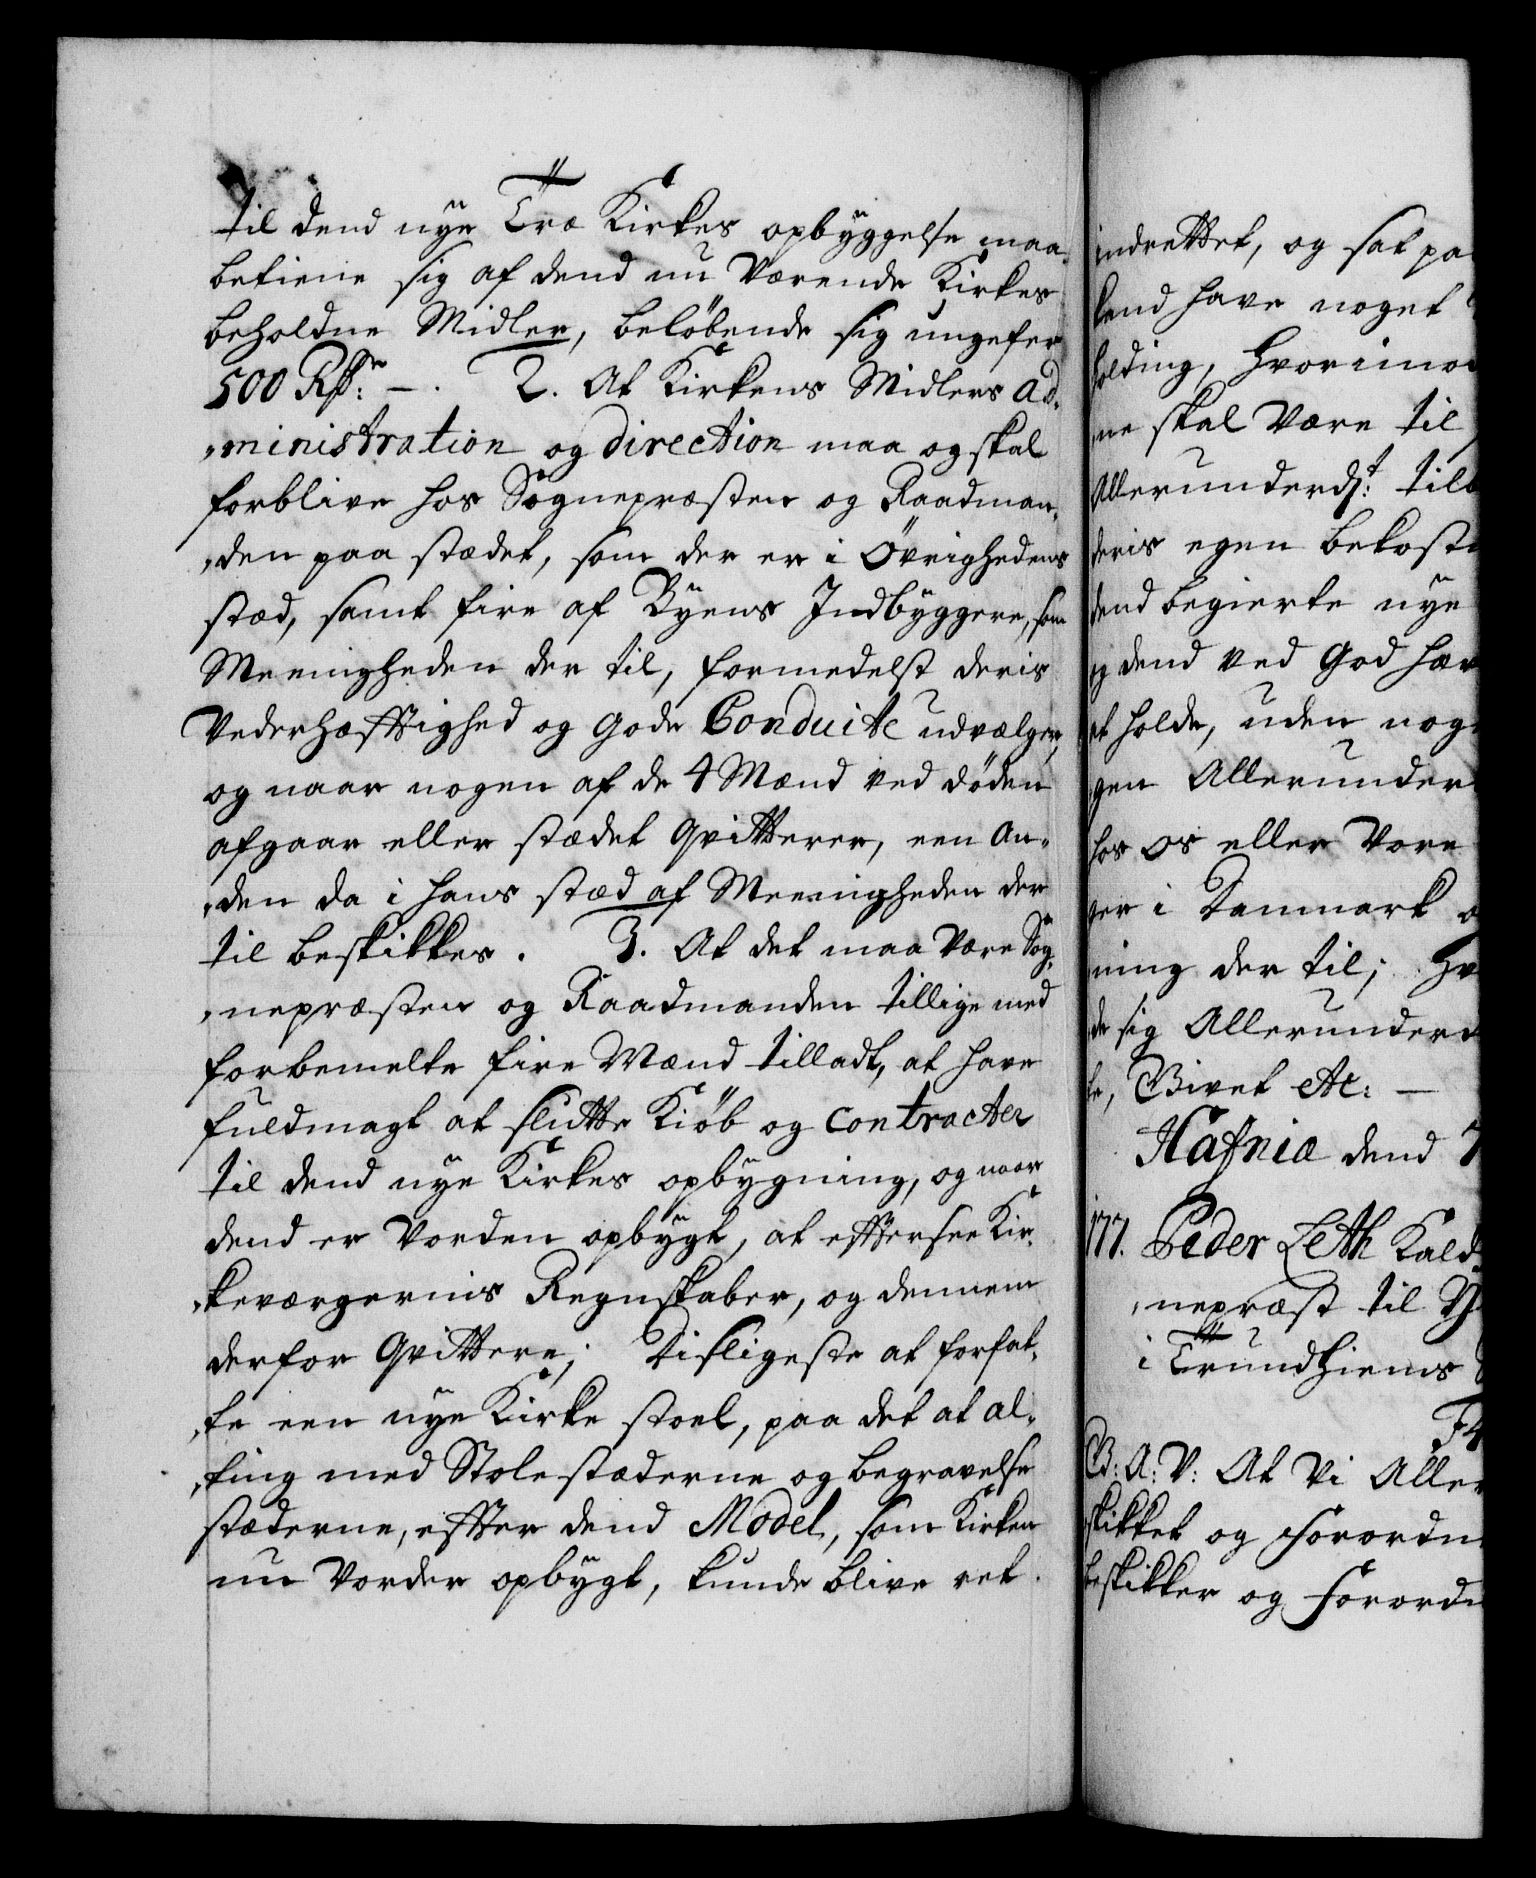 til dend nye Træ Kirkes opbyggelse maa
betiene sig af dend nu Værende Kirkes
beholdne Midler, beløbende sig ungefer
500 Rdr: —. 2. At Kirkens Midlers ad-
ministration og direction maa og skal
forblive hos Sognepræsten og Raadman-
den paa stædet, som der er i Øvrighedens
stæd, samt fire af Byens Indbyggere, som
Meenigheden der til, formedelst deris
Vederhæfftighed og gode Conduite udvælger,
og naar nogen af de 4 Mænd ved døden
afgaar eller stædet qvitterer, een an-
den da i hans stæd af Meenigheden der
til beskikkes. 3. At det maa Være Sog-
nepræsten og Raadmanden tillige med
forbemelte fire Mænd tilladt, at have
fuldmagt at slutte Kiøb og Contracter
til dend nye Kirkes opbygning, og naar
dend er Vorden opbygt, at efftersee Kir-
keværgernis Regnskaber, og dennem
derfor qvittere; disligeste at forfat-
te een nye Kirke stoel, paa det at al-
ting med Stolestæderne og begravelse
stæderne, effter dend Model, som Kirken
nu Vorder opbygt, kunde blive ret
indrettet, og sat paa
kend have noget
holding, hvorimod
ne skal Være til
Allerunderd:t til
deris egen bekost
dend begierte nye
og dend ved god hæv
at holde, uden nog
gen Allerunder
hos os eller Vore
ger i Danmark o
ning der til; Hv
de sig Allerunderd
te, Givet etc: —
Hafniæ dend 7
177. Peder Leth Kald-
nepræst til
i Trundhiems
F4
G: A: V: At Vi Aller
skikket og forordn
beskikker og forord